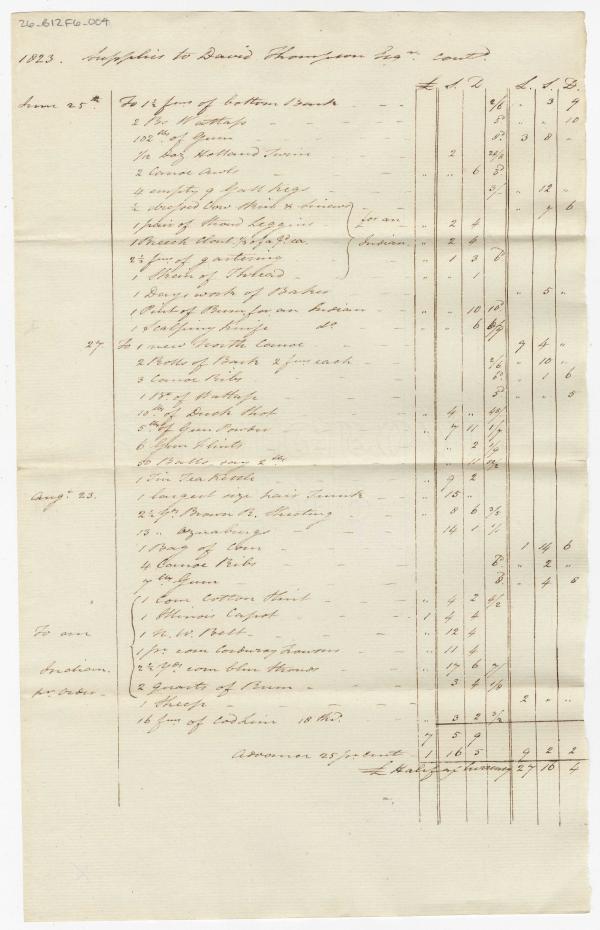 26-B12F6-004
1823. Supplies to David Thompson Esqr. contd.
£ S. D. £. S. D.
June 25th To 1½ fms of bottom Bark 2/6 " 3 9
2 Bs Wattap 5d " " 10
102 lbs of Gum 8d 3 8 "
box Holland Twine " 2
2 Canoe Awls " " 6
4 empty 9 Gall Kegs 3/ " 12 "
½ dressed Cow Skin & sinews " 7 6
1 pair of Strouds Leggins for an " 2 4
1 Breech Clout Indian " 2 4
2½ fms of gartering " 1 3 6d
1 Skein of Thread " " 1
1 Days work of Baker " 5 "
1 Pint of Rum for an Indian " " 10
1 Scalping Knife do " " 6
27 To 1 new North Canoe 9 4 "
2 Rolls of Bark 2 fms each 2/6 " 10 "
3 Canoe Ribs 6d " 1 6
1 Bs of Wattap 5d " " 5
10 lbs of Duck Shot " 4 "
5 lbs of Gun Powder " 7 11
6 Gun Flints " 2
30 Balls, say 2 lbs " 11
1 Tin Tea Kettle " 9 2
Augt. 23. 1 largest size hair Trunk " 15 "
2½ yds Brown R. Sheeting " 8 6
13 " Oznaburgs 14 1 1/1
1 Bag of Corn 1 14 6
4 Canoe Ribs 6d " 2 "
7 lbs Gum 8d " 4 8
1 Com Cotton Shirt " 4 2
1 Illinois Capot 1 4 4
To an 1 N. W. Belt " 12 4
1 pr. com Corduroy Trousers " 11 4
Indian 2½ yds com blue Strouds " 17 6 7/
pr. order 2 Quarts of Rum " 3 4
1 Sheep 2 " "
16 fms of Cod Line 18 thd. " 3 2
7 5 9
Advance 25 pr. cent 1 16 5 9 2 2
£ Halifax Currency 27 16 4